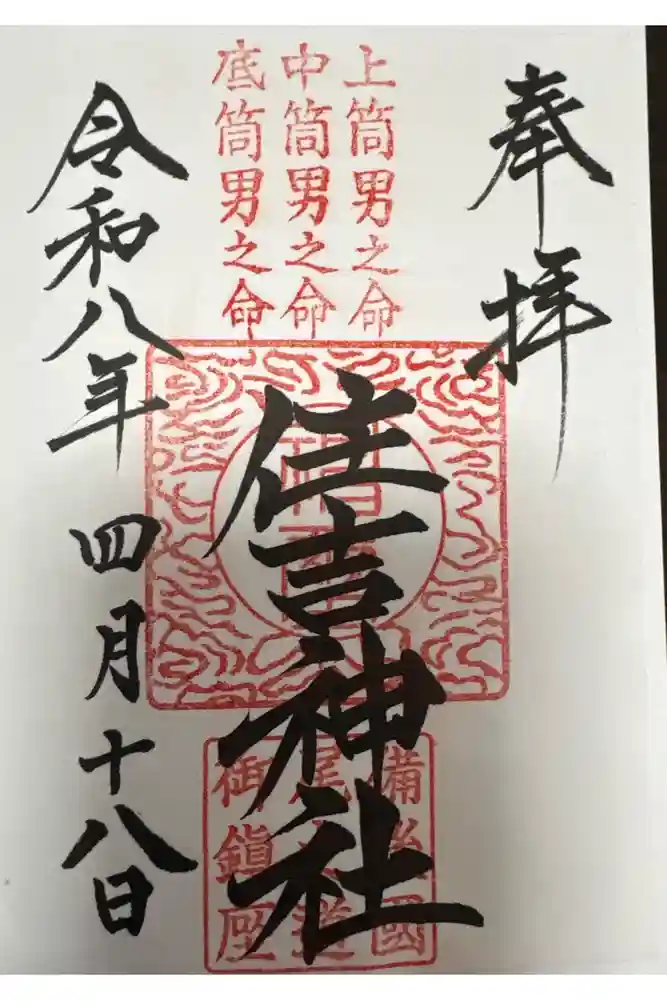 奉拝
上筒男之命
中筒男之命
底筒男之命
住吉神社
備後國
尾之道
御鎮座
令和八年四月十八日